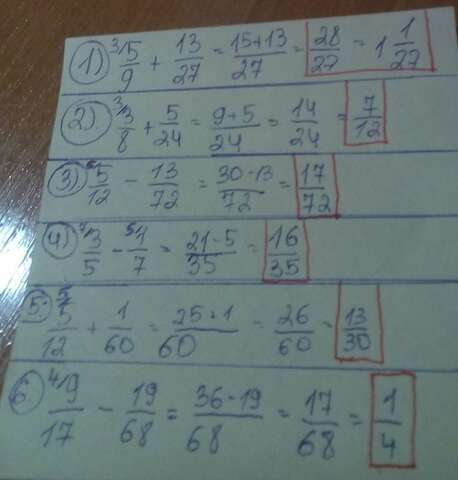 1) ³⁄5/9 + 13/27 = 15+13/27 = 28/27 = 1 1/27
2) ³⁄3/8 + 5/24 = 9+5/24 = 14/24 = 7/12
3) ⁶⁄5/12 - 13/72 = 30-13/72 = 17/72
4) ⁷⁄3/5 - ⁵⁄1/7 = 21-5/35 = 16/35
5. ⁵⁄5/12 + 1/60 = 25+1/60 = 26/60 = 13/30
6. ⁴⁄9/17 - 19/68 = 36-19/68 = 17/68 = 1/4